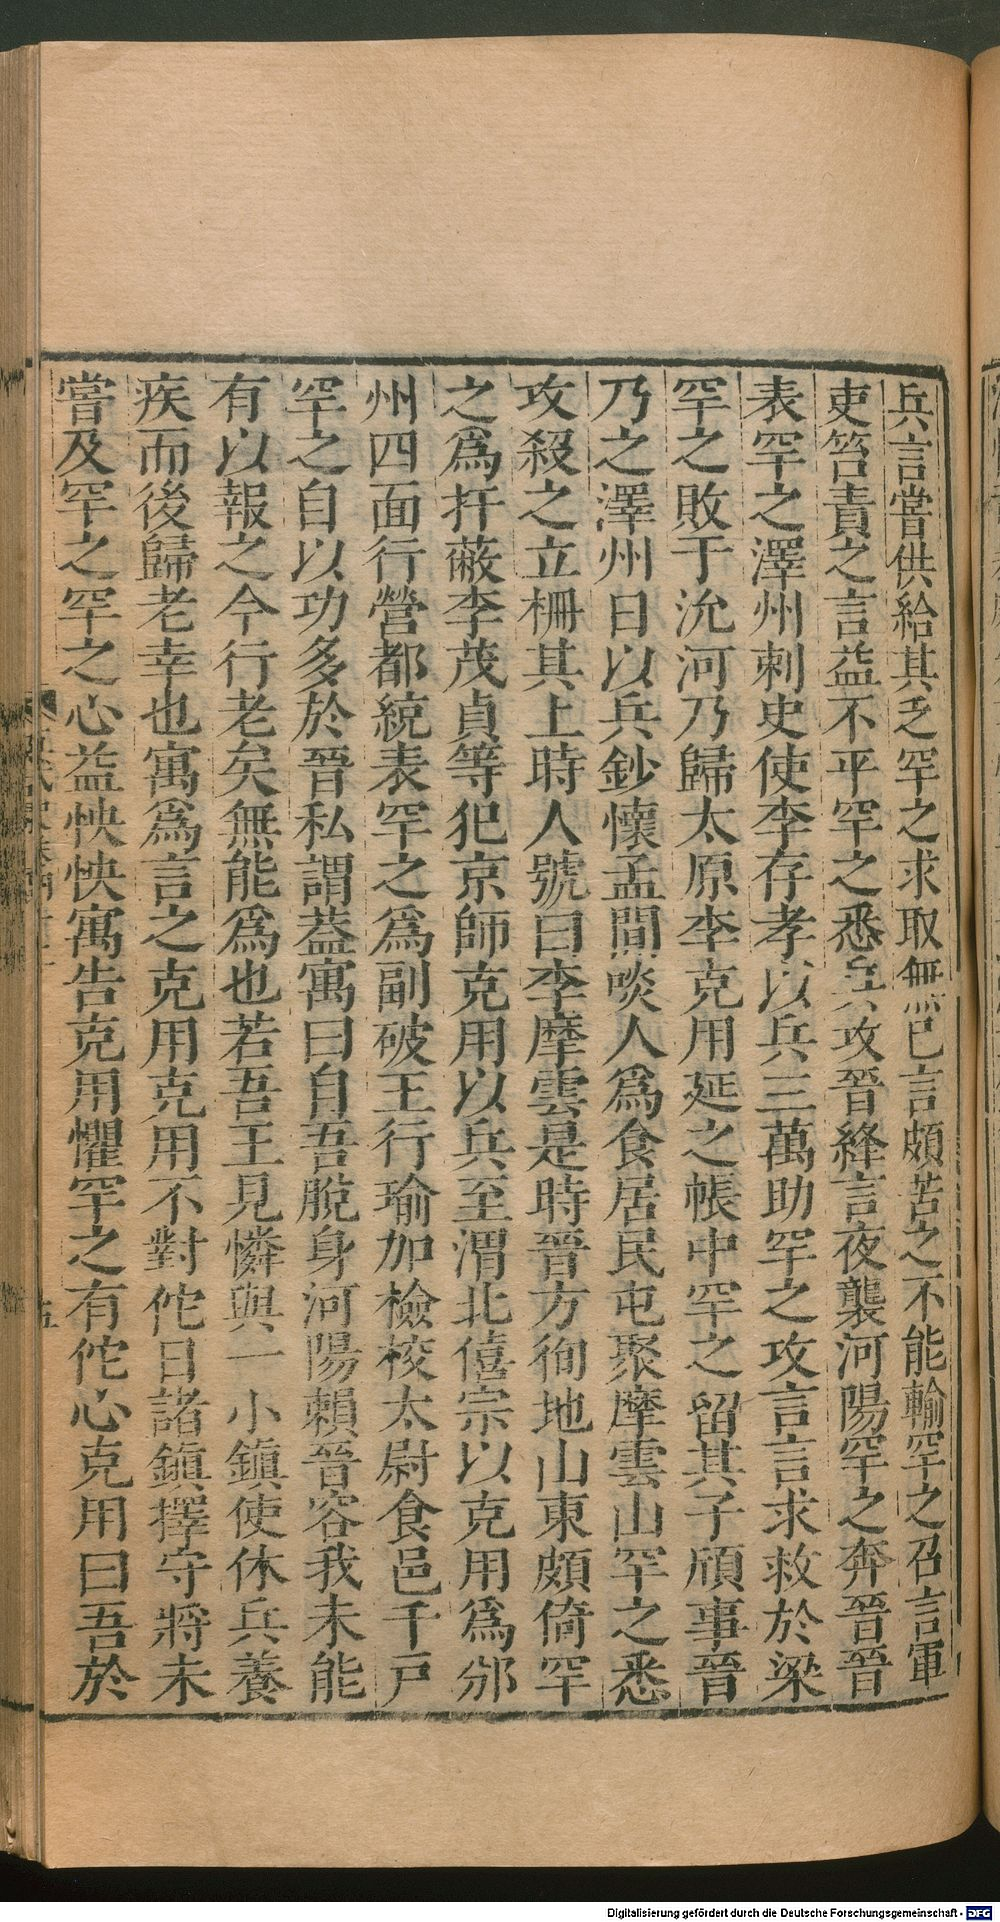 兵言嘗供給其乏罕之求取無已言頗苦之不能輸罕之召言軍
吏笞責之言益不平罕之悉兵攻晉絳言夜襲河陽罕之奔晉晉
表罕之澤州刺史使李存孝以兵三萬助罕之攻言言求救於梁
罕之敗于沇河乃歸太原李克用延之帳中罕之留其子頎事晉
乃之澤州日以兵鈔懷孟間啖人爲食居民屯聚摩雲山罕之悉
攻殺之立柵其上時人號曰李摩雲是時晉方徇地山東頗倚罕
之爲扞蔽李茂貞等犯京師克用以兵至渭北僖宗以克用爲邠
州四面行營都統表罕之爲副破王行瑜加檢校太尉食邑千戶
罕之自以功多於晉私謂蓋寓曰自吾脫身河陽賴晉容我未能
有以報之今行老矣無能爲也若吾王見憐與一小鎮使休兵養
疾而後歸老幸也寓爲言之克用克用不對佗日諸鎮擇守將未
嘗及罕之罕之心益怏怏寓告克用懼罕之有佗心克用曰吾於
五
Digitalisierung gefördert durch die Deutsche Forschungsgemeinschaft - DFG